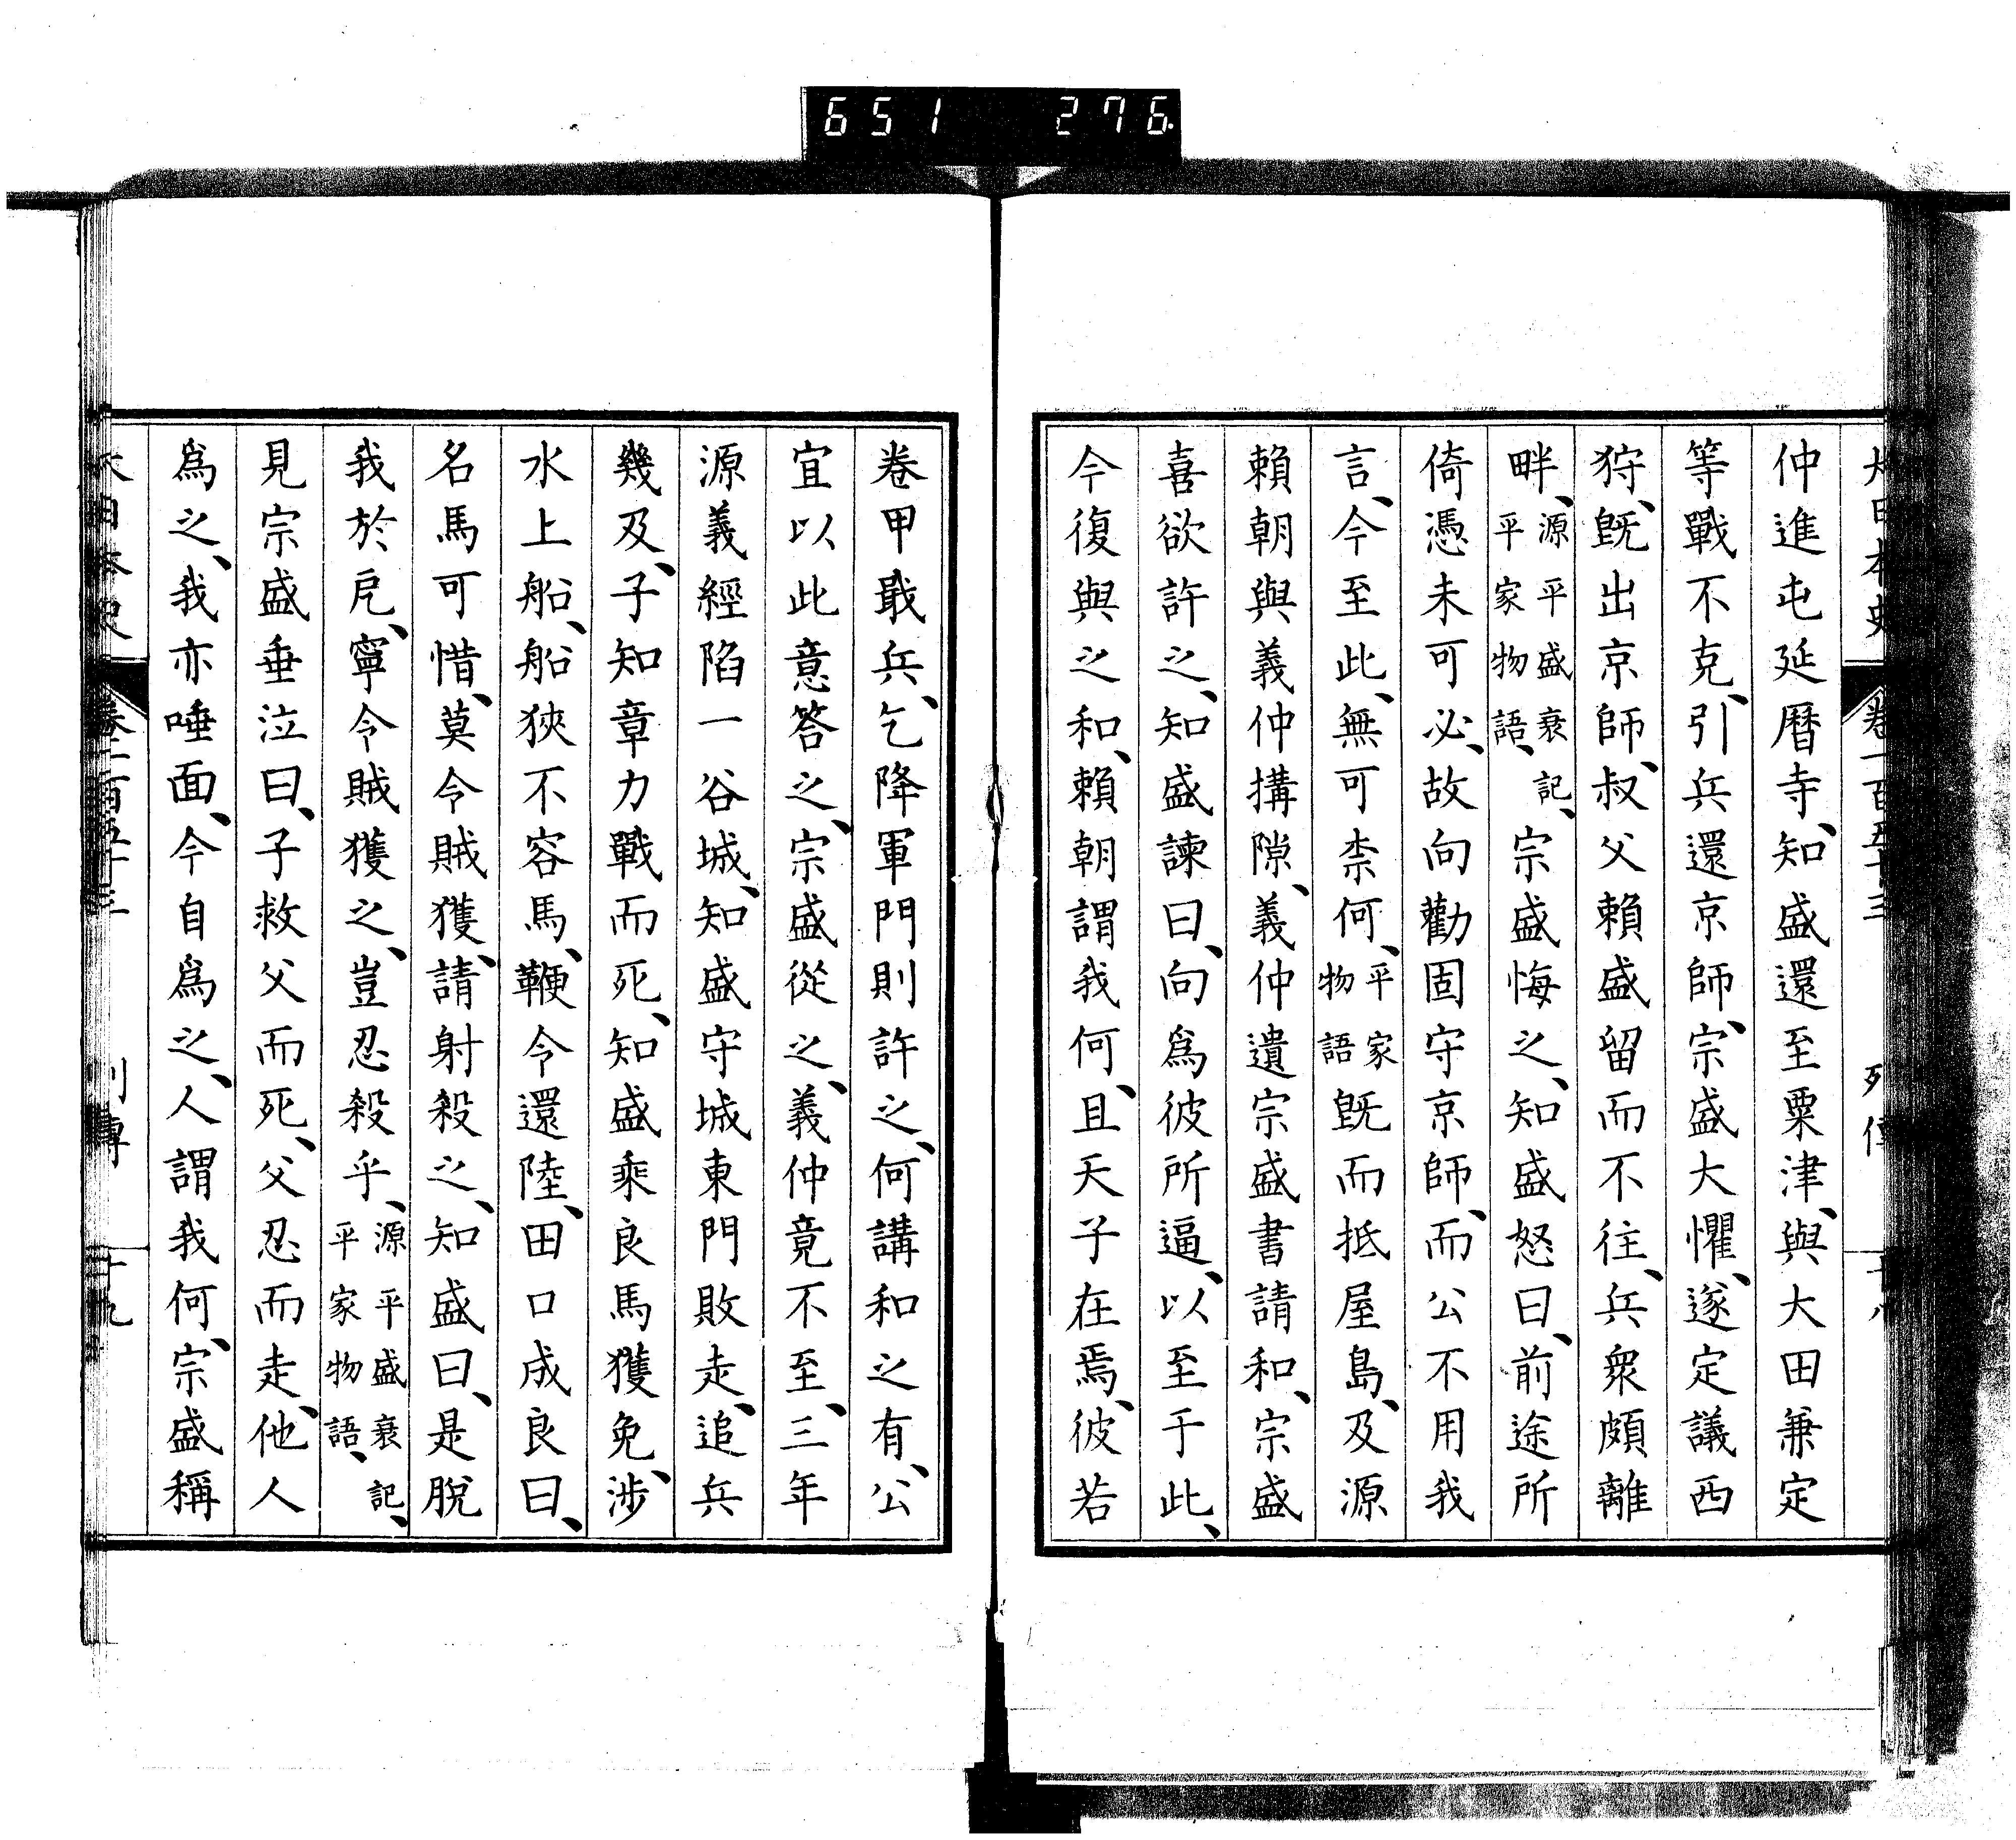 651 276
大日本史 卷一百五十三 列傳
仲進屯延曆寺、知盛還至粟津、與大田兼定
等戰不克、引兵還京師、宗盛大懼、遂定議西
狩、旣出京師、叔父賴盛留而不往、兵衆頗離
畔、源平盛衰記、平家物語、宗盛悔之、知盛怒曰、前途所
倚憑未可必、故向勸固守京師、而公不用我
言、今至此、無可柰何、平家物語旣而抵屋島、及源
賴朝與義仲搆隙、義仲遺宗盛書請和、宗盛
喜欲許之、知盛諫曰、向爲彼所逼、以至于此、
今復與之和、賴朝謂我何、且天子在焉、彼若
卷甲戢兵、乞降軍門則許之、何講和之有、公
宜以此意答之、宗盛從之、義仲竟不至、三年
源義經陷一谷城、知盛守城東門敗走、追兵
幾及、子知章力戰而死、知盛乘良馬獲免、涉
水上船、船狹不容馬、鞭令還陸、田口成良曰、
名馬可惜、莫令賊獲、請射殺之、知盛曰、是脫
我於戹、寧令賊獲之、豈忍殺乎、源平盛衰記、平家物語、
見宗盛垂泣曰、子救父而死、父忍而走、他人
爲之、我亦唾面、今自爲之、人謂我何、宗盛稱
大日本史 卷一百五十三 列傳